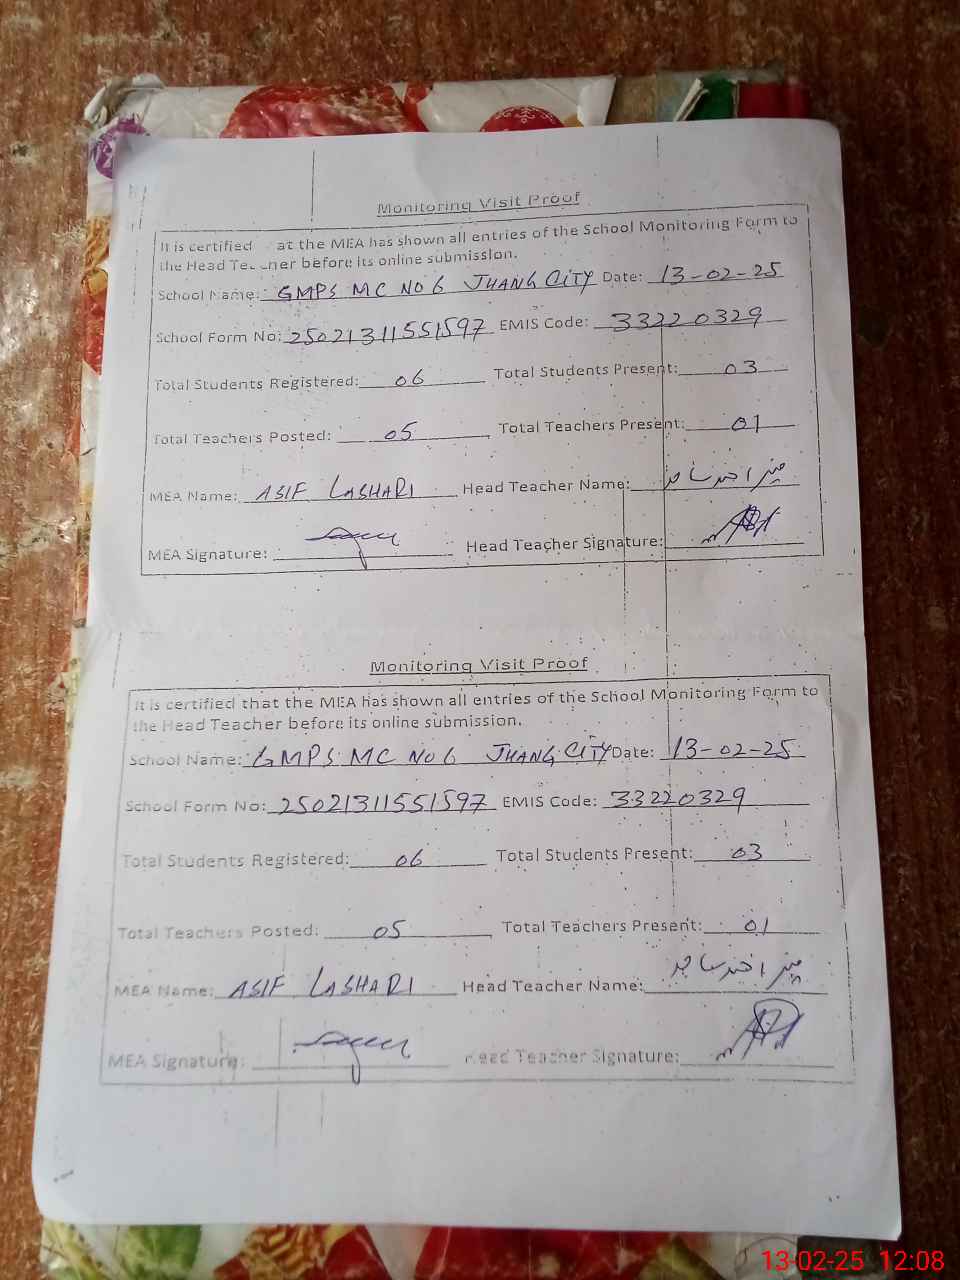 Monitoring Visit Proof
It is certified at the MEA has shown all entries of the School Monitoring Form to
the Head Teacher before its online submission.
School Name: GMPS MC NO 6 JHANG CITY Date: 13-02-25
School Form No: 25021311551597 EMIS Code: 33220329
Total Students Registered: 06 Total Students Present: 03
Total Teachers Posted: 05 Total Teachers Present: 01
MEA Name: ASIF LASHARI Head Teacher Name:
MEA Signature: Head Teacher Signature:
Monitoring Visit Proof
It is certified that the MEA has shown all entries of the School Monitoring Form to
the Head Teacher before its online submission.
School Name: GMPS MC NO 6 JHANG CITY Date: 13-02-25
School Form No: 25021311551597 EMIS Code: 33220329
Total Students Registered: 06 Total Students Present: 03
Total Teachers Posted: 05 Total Teachers Present: 01
MEA Name: ASIF LASHARI Head Teacher Name:
MEA Signature: Head Teacher Signature:
13-02-25 12:08